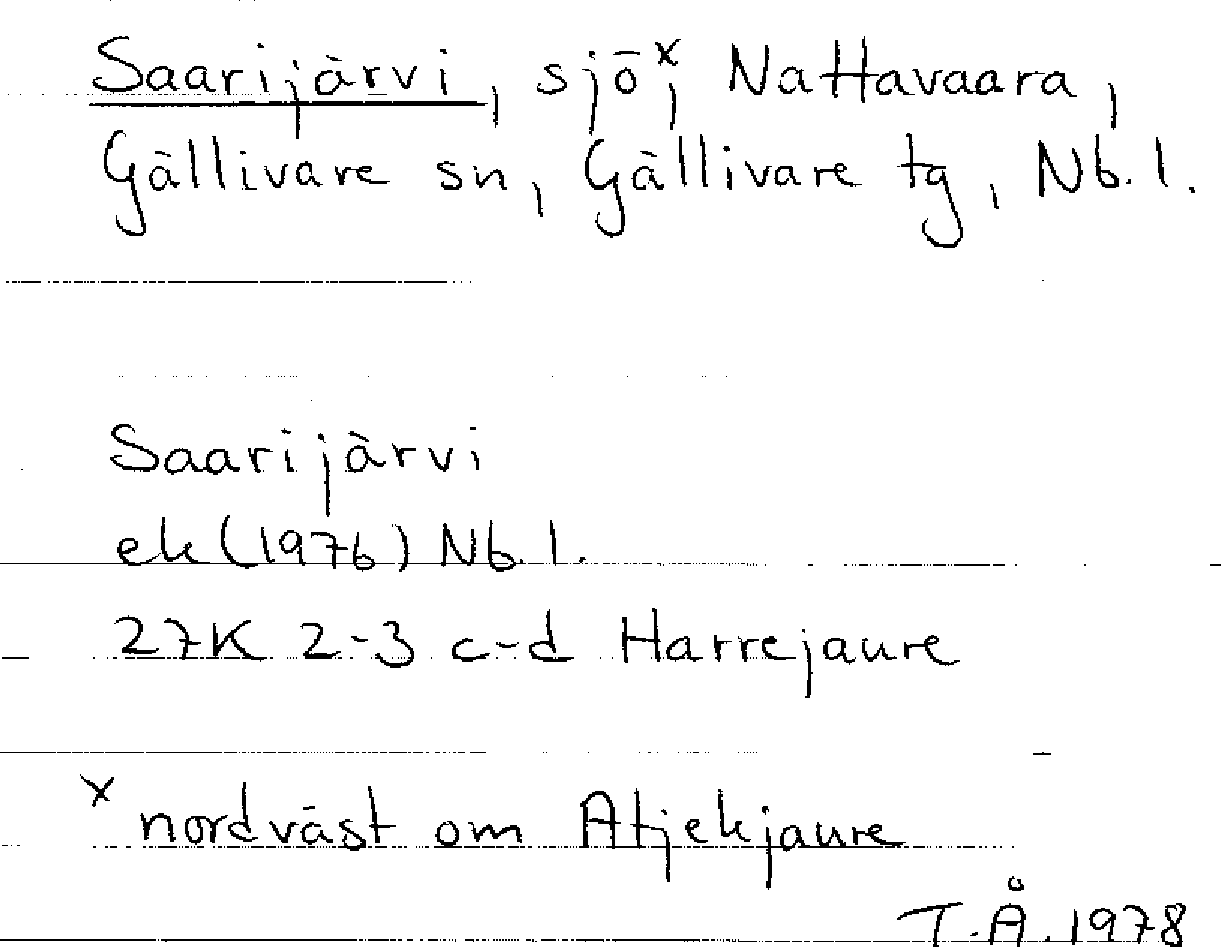 Saarijärvi, sjö x; Nattavaara,
Gällivare sn, Gällivare tg, Nb. l.
Saarijärvi
ek (1976) Nb. l.
27K 2-3 c-d Harrejaure
x nordväst om Atjekjaure
T.Å. 1978